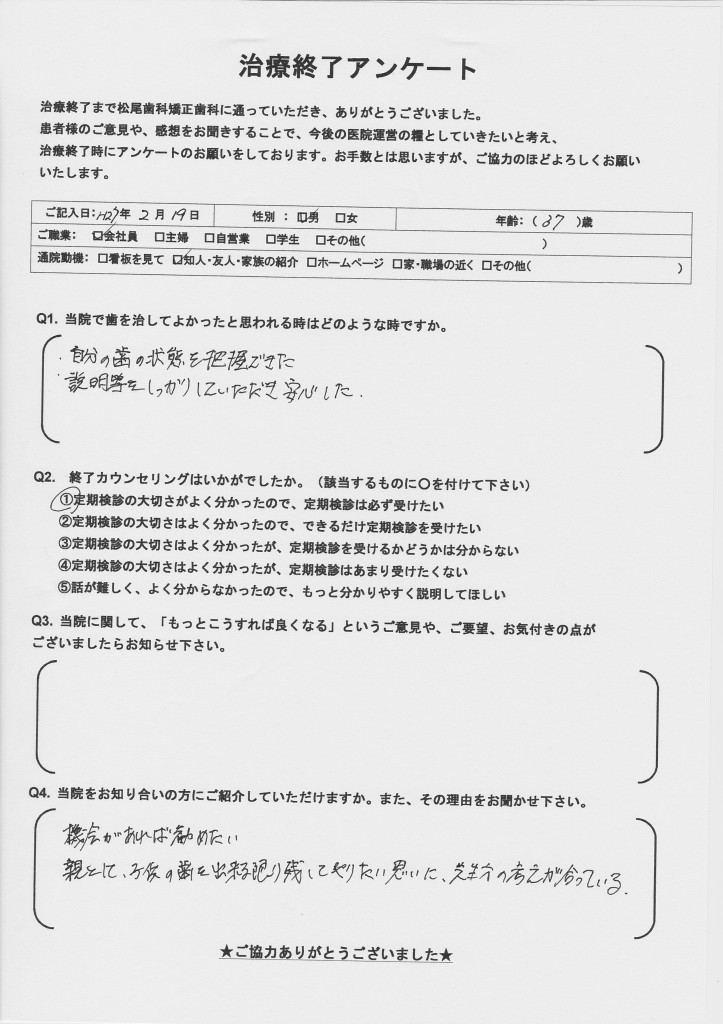 治療終了アンケート
治療終了まで松尾歯科矯正歯科に通っていただき、ありがとうございました。
患者様のご意見や、感想をお聞きすることで、今後の医院運営の糧としていきたいと考え、
治療終了時にアンケートのお願いをしております。お手数とは思いますが、ご協力のほどよろしくお願い
いたします。
ご記入日：H27年 2月 19日 性別 ： ☑男 □女 年齢：（ 37 ）歳
ご職業： ☑会社員 □主婦 □自営業 □学生 □その他（ ）
通院動機： □看板を見て ☑知人・友人・家族の紹介 □ホームページ □家・職場の近く □その他（ ）
Q1. 当院で歯を治してよかったと思われる時はどのような時ですか。
・自分の歯の状態を把握できた
・説明等をしっかりしていただき安心した.
Q2. 終了カウンセリングはいかがでしたか。（該当するものに〇を付けて下さい）
①定期検診の大切さがよく分かったので、定期検診は必ず受けたい
②定期検診の大切さはよく分かったので、できるだけ定期検診を受けたい
③定期検診の大切さはよく分かったが、定期検診を受けるかどうかは分からない
④定期検診の大切さはよく分かったが、定期検診はあまり受けたくない
⑤話が難しく、よく分からなかったので、もっと分かりやすく説明してほしい
Q3. 当院に関して、「もっとこうすれば良くなる」というご意見や、ご要望、お気付きの点が
ございましたらお知らせ下さい。
Q4. 当院をお知り合いの方にご紹介していただけますか。また、その理由をお聞かせ下さい。
機会があれば勧めたい
親として、子供の歯を出来る限り残してやりたい思いに、先生方の考えが合っている.
★ご協力ありがとうございました★